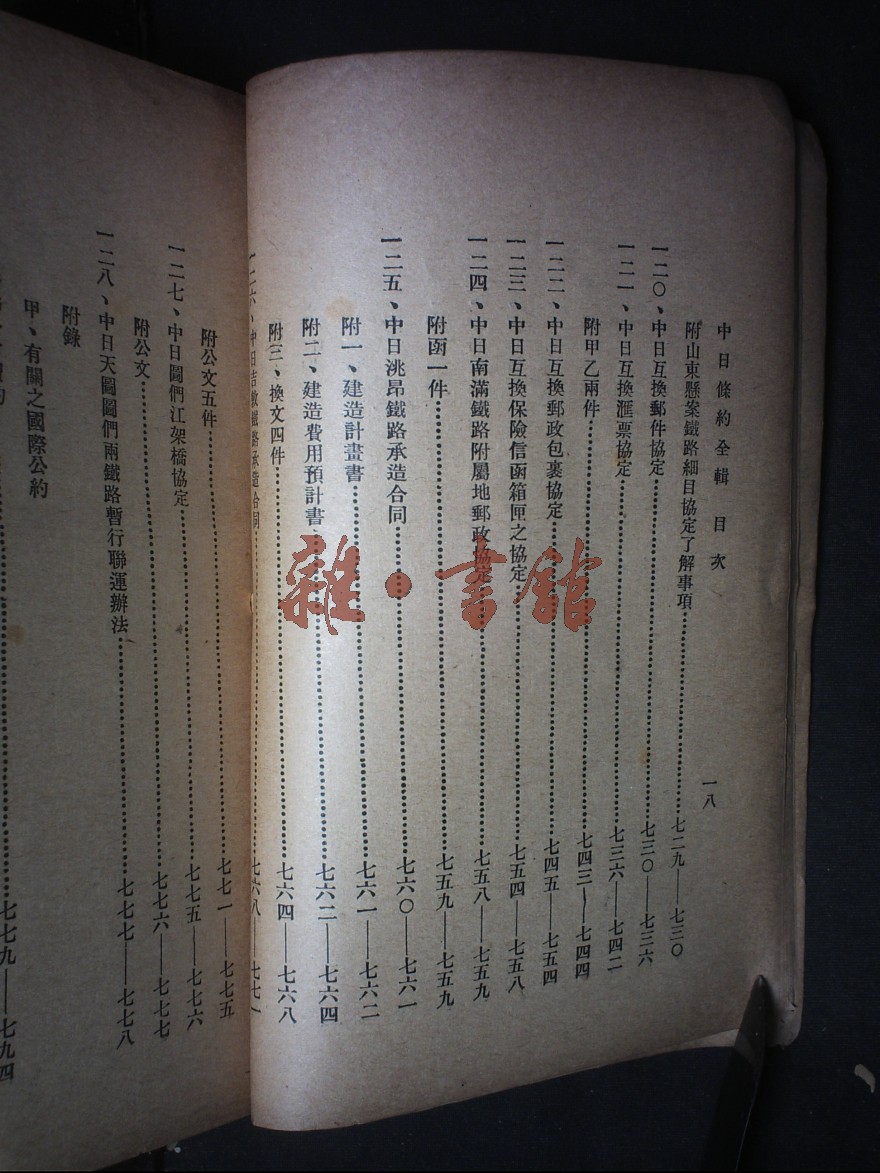 中日條約全輯 目次 一八
附山東懸案鐵路細目協定了解事項……七二九——七三〇
一二〇、中日互換郵件協定……七三〇——七三六
一二一、中日互換滙票協定……七三六——七四二
附甲乙兩件……七四三——七四四
一二二、中日互換郵政包裹協定……七四五——七五四
一二三、中日互換保險信函箱匣之協定……七五四——七五八
一二四、中日南滿鐵路附屬地郵政協定……七五八——七五九
附函一件……七五九——七五九
一二五、中日洮昂鐵路承造合同……七六〇——七六一
附一、建造計畫書……七六一——七六二
附二、建造費用預計書……七六二——七六四
附三、換文四件……七六四——七六八
一二六、中日吉敦鐵路承造合同……七六八——七七一
附公文五件……七七一——七七五
一二七、中日圖們江架橋協定……七七五——七七六
附公文……七七六——七七七
一二八、中日天圖圖們兩鐵路暫行聯運辦法……七七七——七七八
附錄
甲、有關之國際公約
七七九——七九四
雜·書館